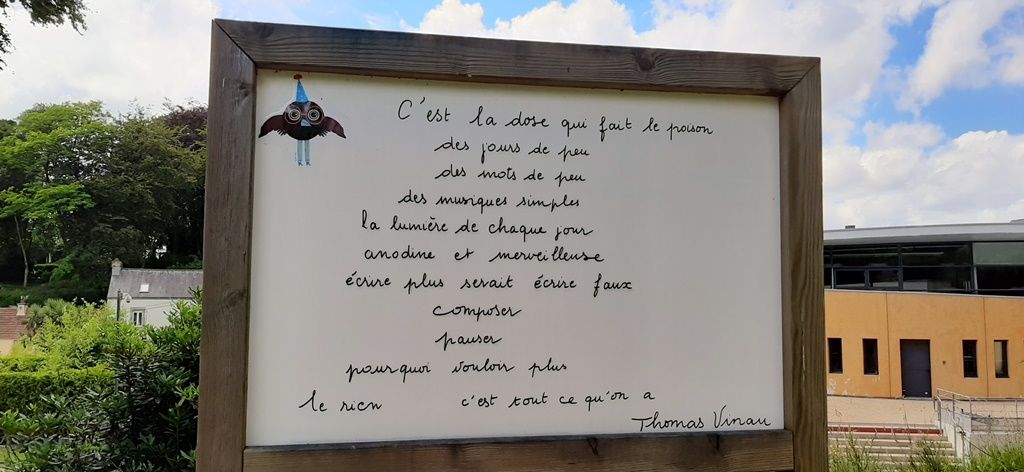 C'est la dose qui fait le poison
des jours de peu
des mots de peu
des musiques simples
la lumière de chaque jour
anodine et merveilleuse
écrire plus serait écrire faux
composer
pauser
pourquoi vouloir plus
le rien c'est tout ce qu'on a
Thomas Vinau